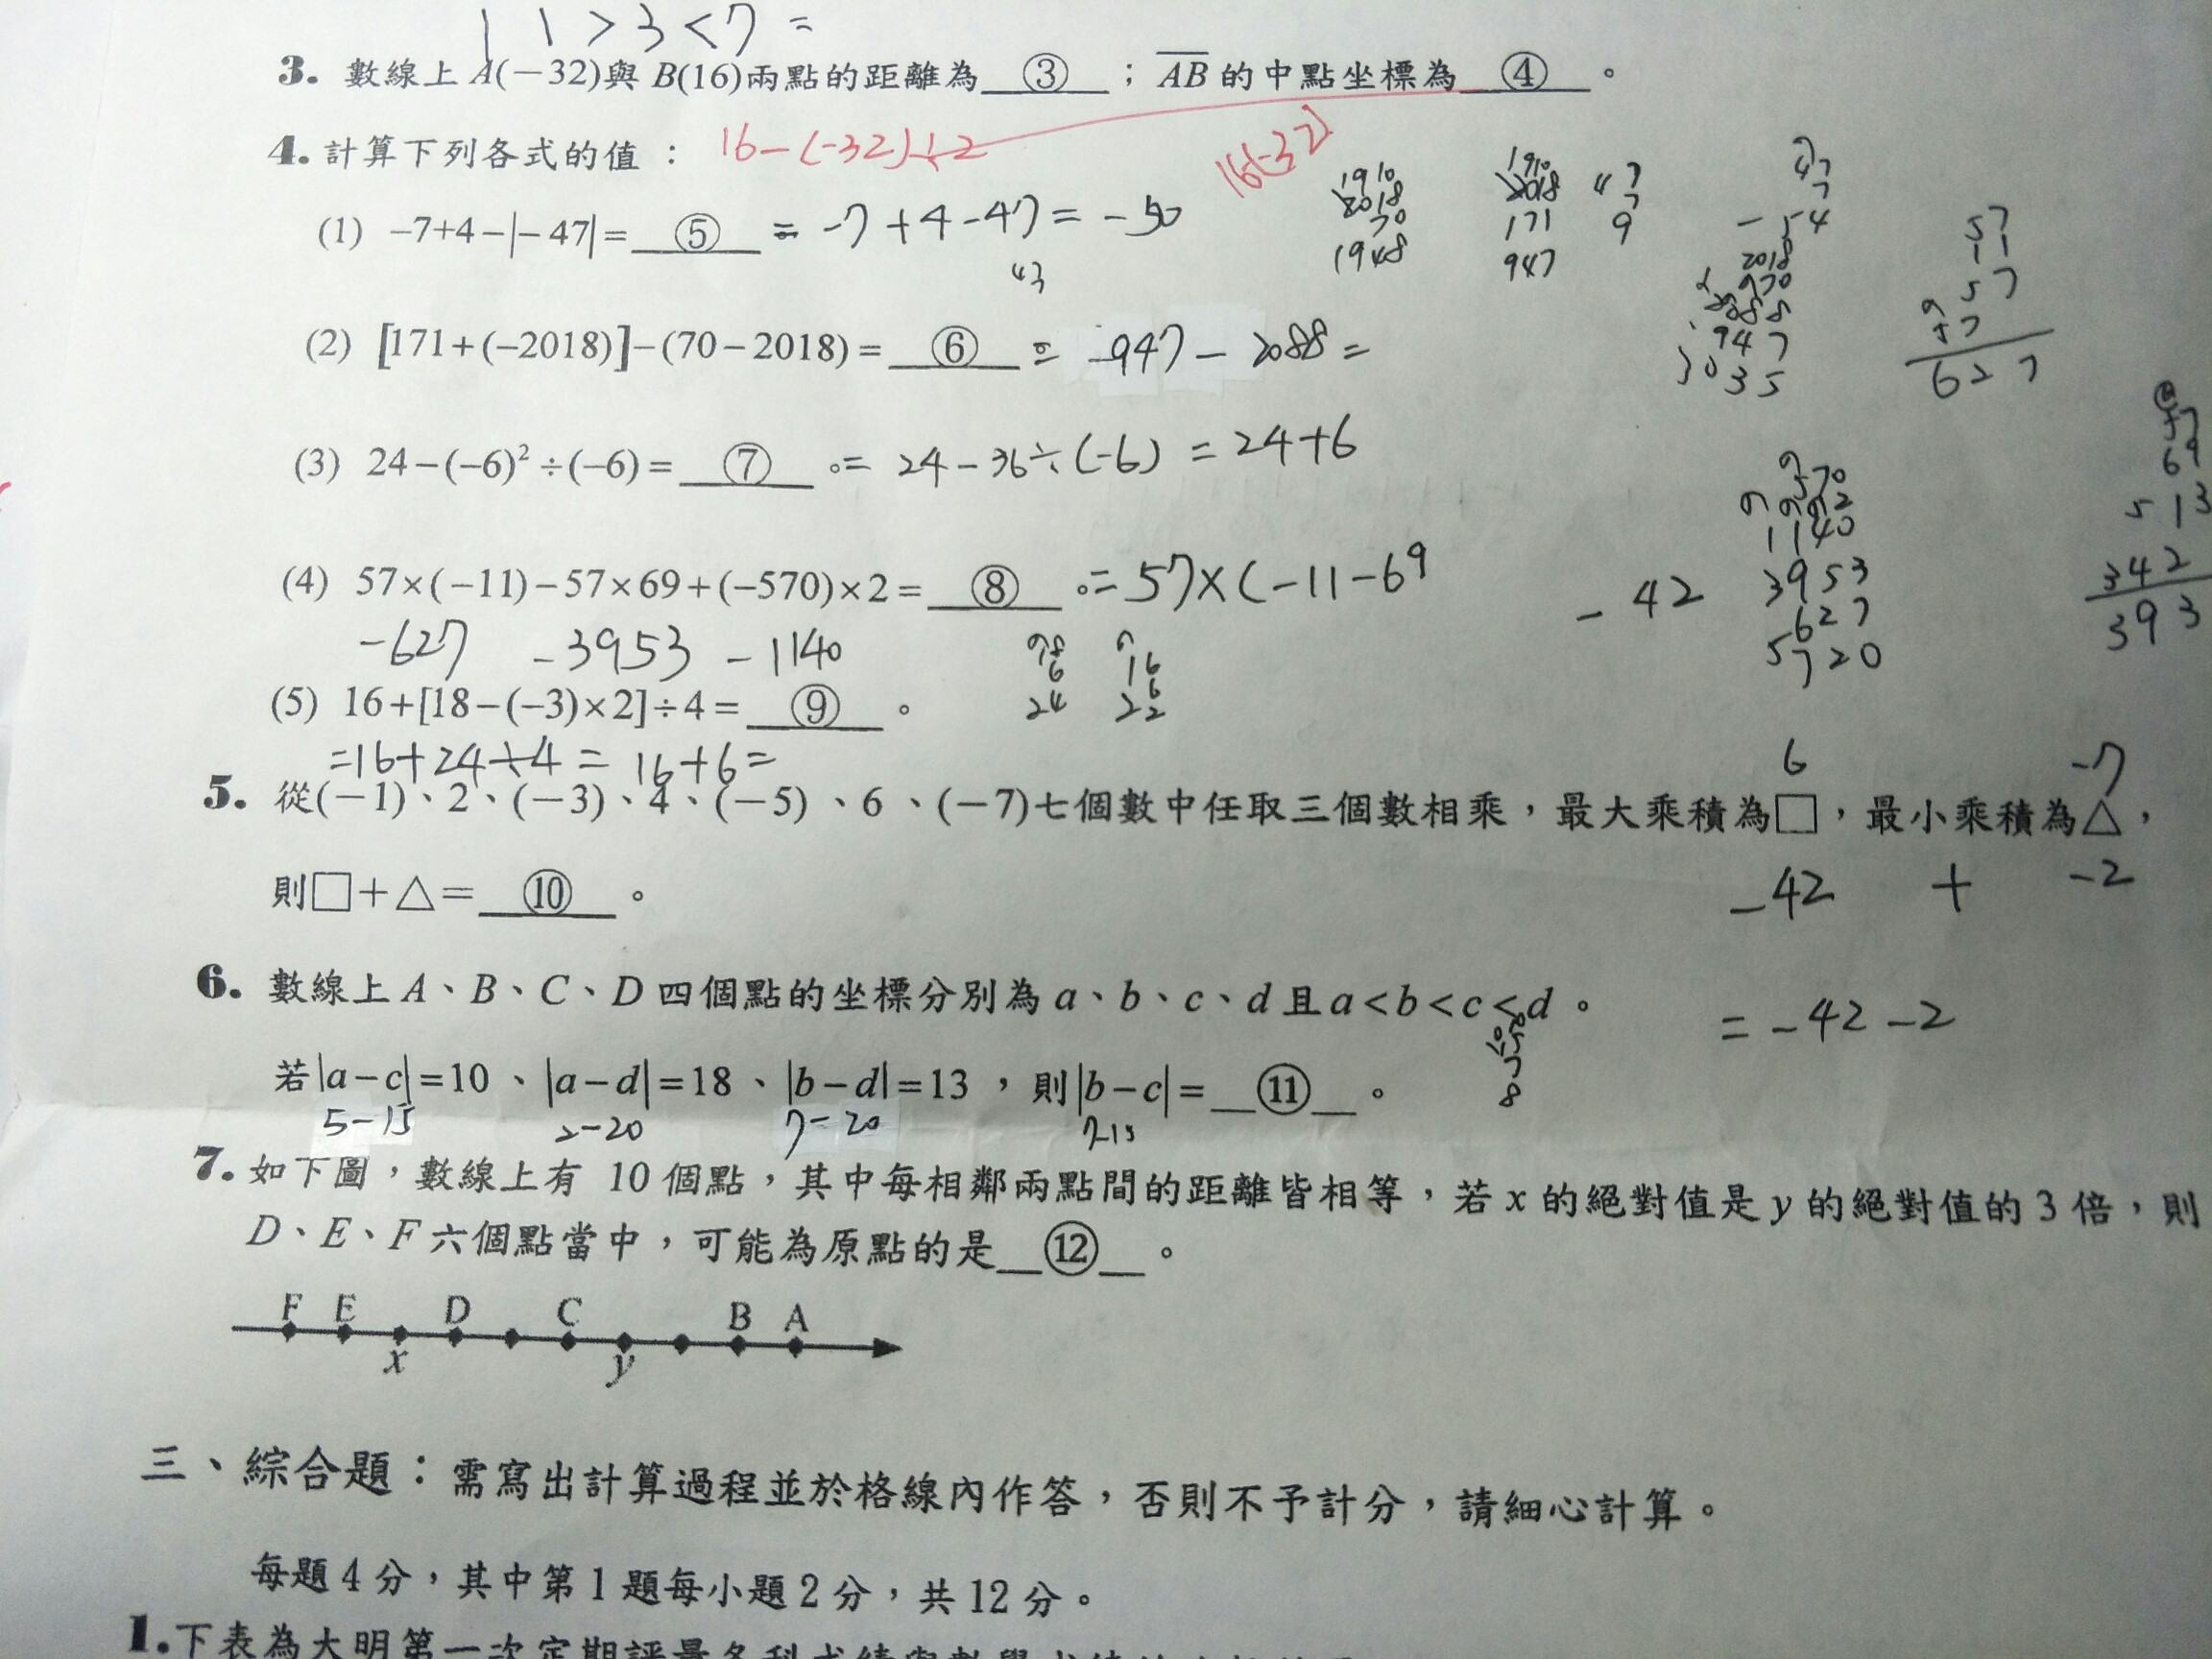 1 1 > 3 < 7 =
3. 數線上 A(−32)與 B(16)兩點的距離為 ③ ； AB 的中點坐標為 ④ 。
4. 計算下列各式的值： 16−(−32)÷2 16(-32)
(1) −7+4−|−47|= ⑤ = −7+4−47 = −50
43
1910
2018
70
1948
1910
2018
171
947
47
7
9
47
7
− 54
2018
970
2088
947
3035
57
11
57
57
627
(2) [171+(−2018)]−(70−2018)= ⑥ = −947 − 2088 =
(3) 24−(−6)²÷(−6)= ⑦ 。= 24−36÷(−6) = 24+6
(4) 57×(−11)−57×69+(−570)×2= ⑧ 。= 57×(−11−69
− 42
570
2
1140
3953
627
5720
57
69
513
342
393
−627 −3953 −1140
6
24
16
6
22
(5) 16+[18−(−3)×2]÷4= ⑨ 。
=16+24÷4 = 16+6=
6 −7
5. 從(−1)、2、(−3)、4、(−5)、6、(−7)七個數中任取三個數相乘，最大乘積為□，最小乘積為△，
則□+△= ⑩ 。 −42 + −2
= −42 −2
6. 數線上 A、B、C、D 四個點的坐標分別為 a、b、c、d 且 a<b<c<d。
若|a−c|=10、|a−d|=18、|b−d|=13，則|b−c|= ⑪ 。
7
8
5−15 2−20 7−20 7-15
7. 如下圖，數線上有 10 個點，其中每相鄰兩點間的距離皆相等，若 x 的絕對值是 y 的絕對值的 3 倍，則
D、E、F 六個點當中，可能為原點的是 ⑫ 。
F E D C B A
x y
三、綜合題：需寫出計算過程並於格線內作答，否則不予計分，請細心計算。
每題 4 分，其中第 1 題每小題 2 分，共 12 分。
1.下表為大明第一次定期評量各科成績與數學成績